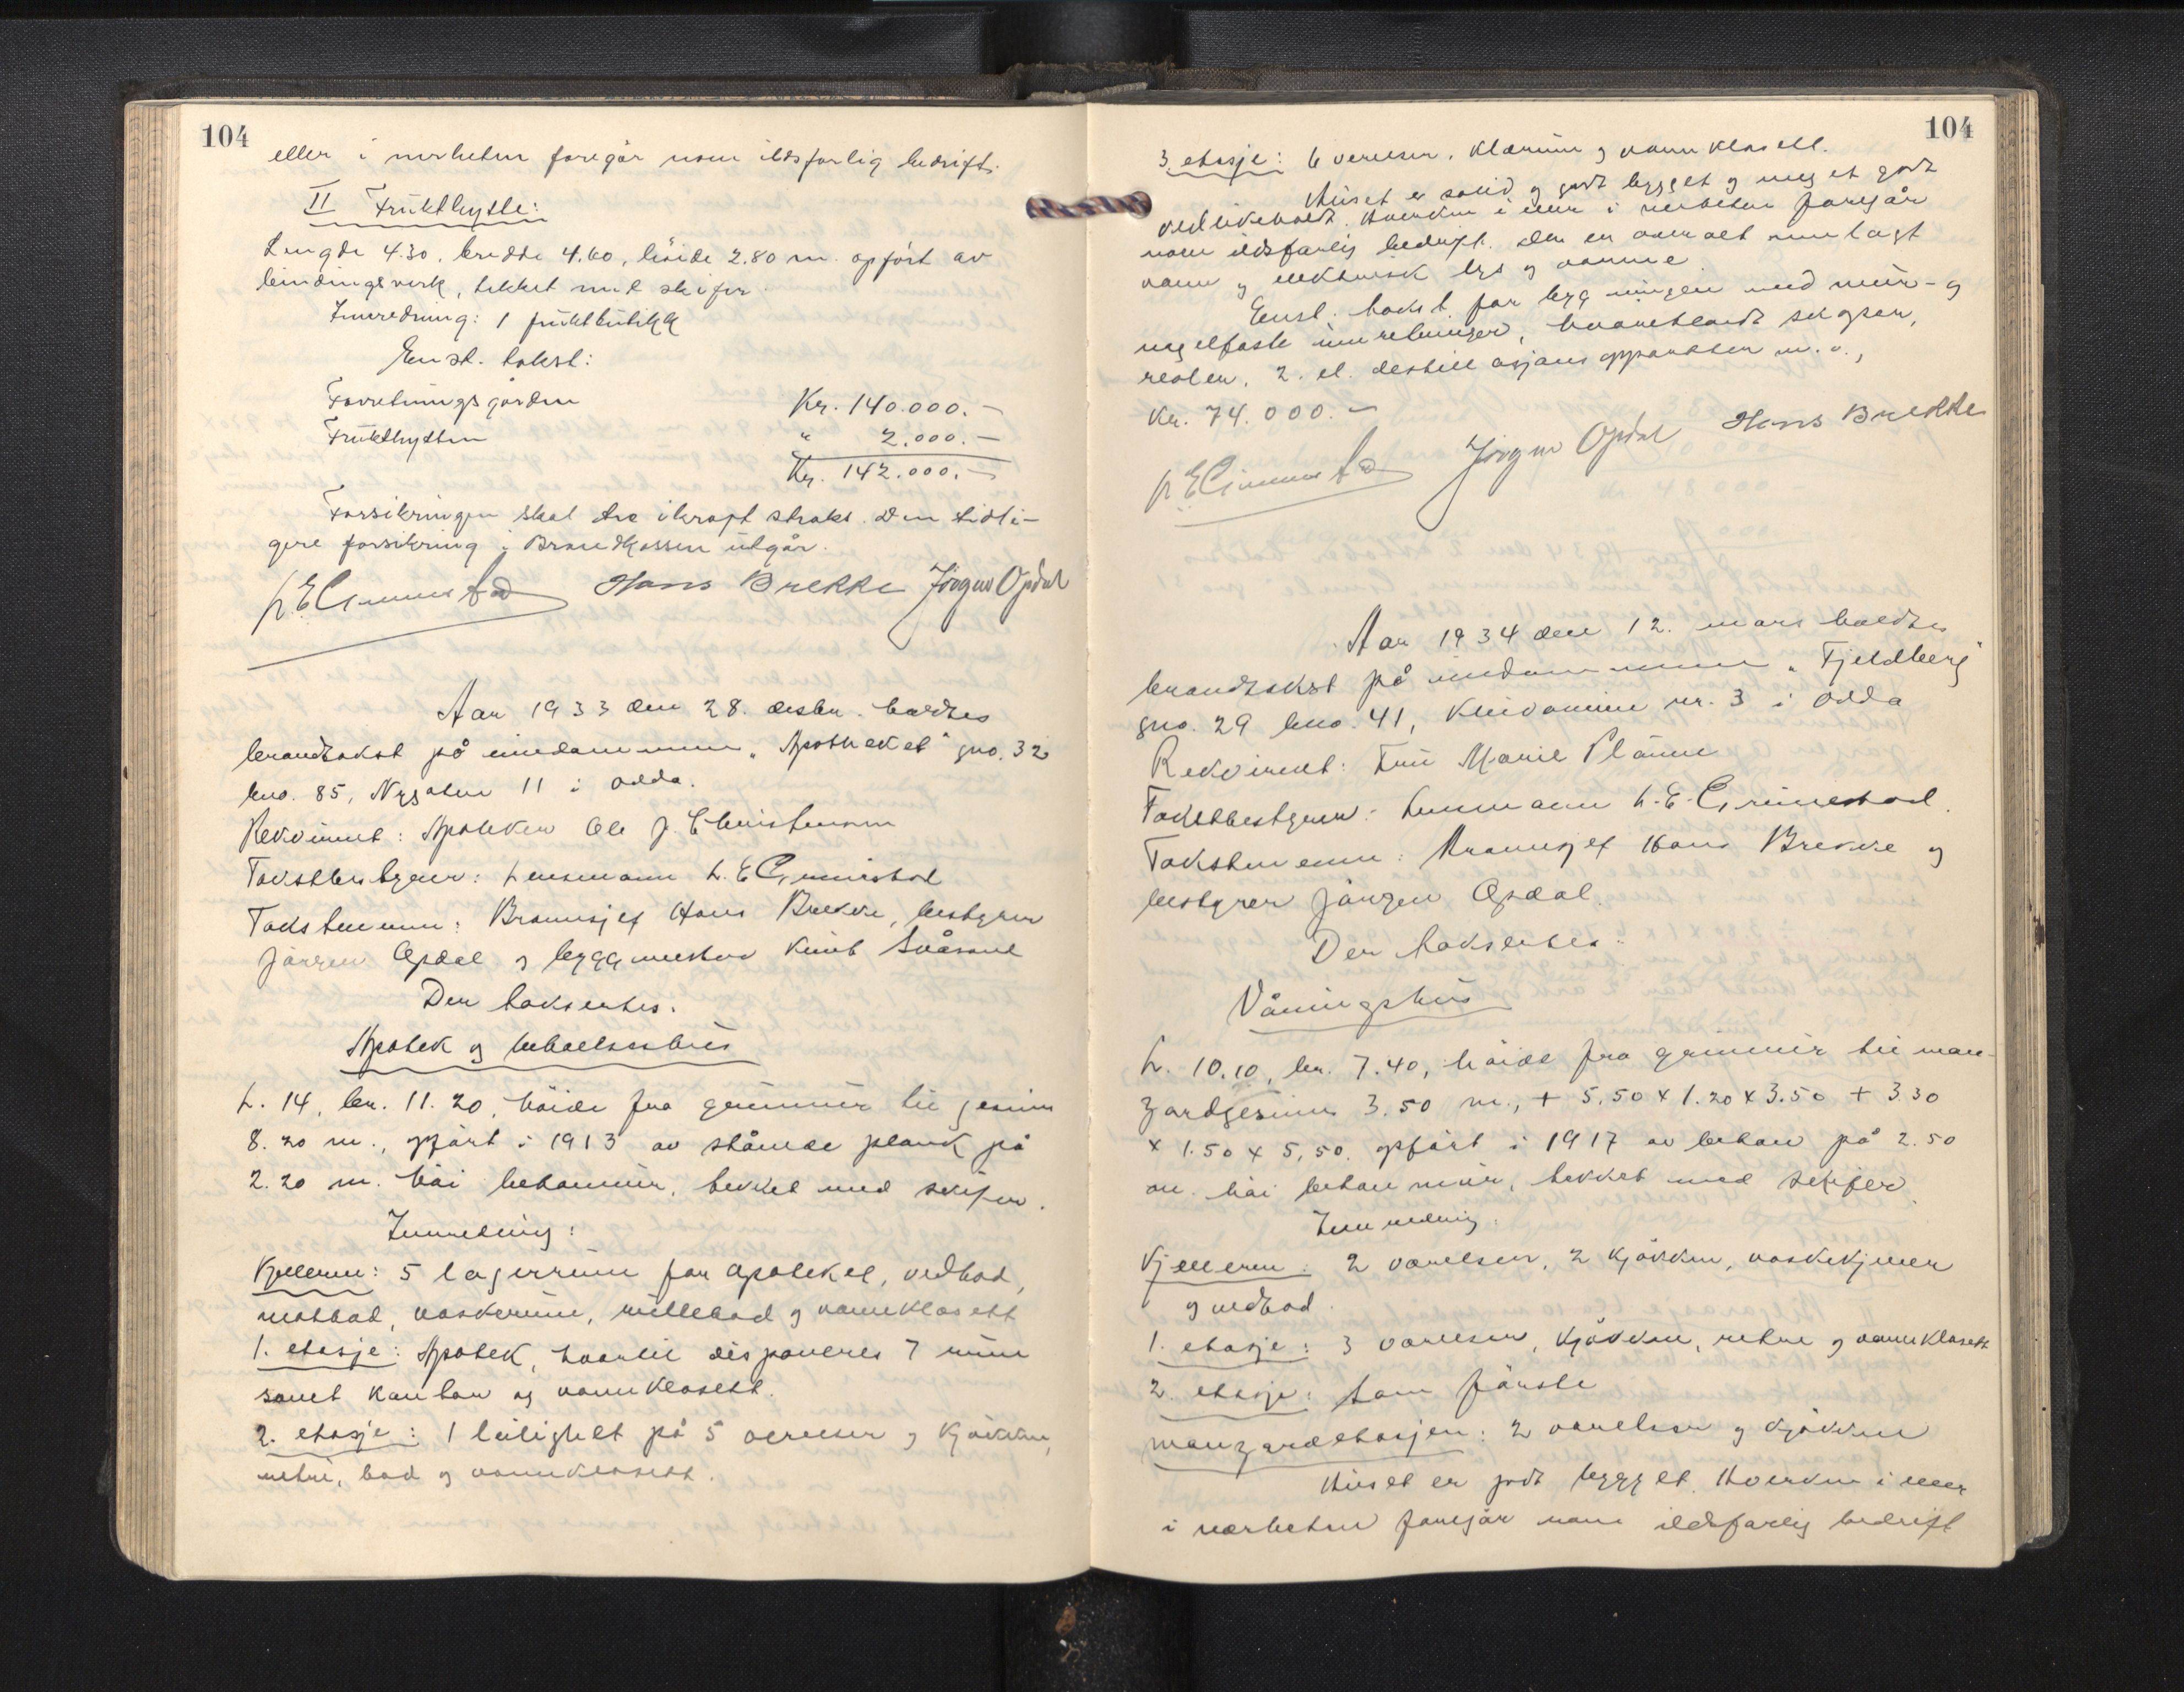 104
eller i nerheten foregår noen ildsfarlig bedrift.
II Frukthytte:
Lengde 4.30, bredde 4.60, höide 2.80 m. opført av
bindingsverk, tekket med skifer
Innredning: 1 fruktbutikk
Enst. takst:
Forretningsgården Kr. 140.000.-
Frukthytten " 2.000.-
Kr. 142.000.-
Forsikringen skal tre ikraft straks. Den tidli-
gere forsikring i Brandkassen utgår.
L. E. Grimestad Hans Brekke Jörgen Opdal
Aar 1933 den 28. desbr. holdtes
brandtakst på eiendommen "Apotheket" gno. 32
bno. 85, Nygaten 11 i Odda.
Rekvirent: Apoteker Ole J. Christensen
Takstbestyrer: Lensmann L. E. Grimestad
Takstmenn: Brannsjef Hans Brekke, bestyrer
Jörgen Opdal og byggmester Knut
Der takseertes.
Apotek og beboelseshus
L. 14, br. 11.20, höide fra grunmur til gesims
8.20 m., opfört i 1913 av stående plank på
2.20 m. höi betonmur, tekket med skifer.
Innredning:
Kjelleren: 5 lagerrum for apoteket, vedbod,
matbod, vaskerum, rullebod og vannklosett
1. etasje: Apotek, hvortil disponeres 7 rum
samt kontor og vannklosett.
2. etasje: 1 leilighet på 5 verelser og kjökken,
entré, bad og vannklosett.
104
3. etasje: 6 verelser, klærum og vannklosett.
Huset er solid og godt bygget og meget godt
vedlikeholdt. Hverken i eller i nerheten foregår
noen ildsfarlig bedrift. Der er overalt innlagt
vann og elektrisk lys og varme.
Enst. takst for bygningen med mur- og
nagelfaste innretninger, hvoriblandt skapser,
reoler, 2 el. destillasjonsapparater m.v.,
Kr. 74.000.-
L. E. Grimestad Jörgen Opdal Hans Brekke
Aar 1934 den 12. mars holdtes
brandtakst på eiendommen "Fjeldberg"
gno. 29 bno. 41, nr. 3 i Odda
Rekvirent: Fru Marie
Takstbestyrer: Lensmann L. E. Grimestad.
Takstmenn: Brannsjef Hans Brekke og
bestyrer Jörgen Opdal.
Der takseertes:
Våningshus
L. 10.10, br. 7.40, höide fra grunmur til man-
zardgesims 3.50 m., + 5.50 x 1.20 x 3.50 + 3.30
x 1.50 x 5.50. opfört i 1917 av beton på 2.50
m. höi betonmur, tekket med skifer.
Innredning:
Kjelleren: 2 værelser, 2 kjökken, vaskekjeller
og vedbod.
1. etasje: 3 værelser, kjökken, entre og vannklosett
2. etasje: som förste
manzardetasjen: 2 værelser og kjökken
Huset er godt bygget. Hverken i eller
i nærheten foregår noen ildsfarlig bedrift